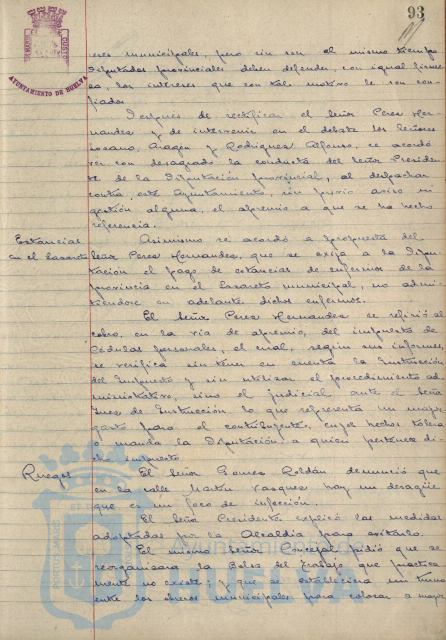 93
AYUNTAMIENTO DE HUELVA
eses municipales, pero sin son al mismo tiempo
Diputados provinciales deben defender, con igual firme
za, los intereses que con tal motivo le son con
fiados.
Después de rectificar el Señor Perez Her-
nandez y de intervenir en el debate los Señores
Lozano, Aragon y Rodriguez Alfonso, se acordó
ver con desagrado la conducta del Señor Presiden-
te de la Diputación provincial, al despachar
contra este Ayuntamiento, sin previo aviso ni
gestión alguna, el apremio a que se ha hecho
referencia.
Estancias
en el Lazareto
Asimismo se acordó a propuesta del
Señor Perez Hernandez, que se exija a la Dipu-
tación el pago de estancias de enfermos de la
provincia en el Lazareto municipal, no admi-
tiendose en adelante dichos enfermos.
El Señor Perez Hernandez se refirió al
cobro, en la vía de apremio, del impuesto de
Cédulas personales, el cual, según sus informes,
se verifica sin tener en cuenta la Instrucción
del Impuesto y sin utilizar el procedimiento ad
ministrativo, sino el judicial, ante el Señor
Juez de Instrucción, lo que representa un mayor
gasto para el contribuyente, cuyos hechos tolera
o manda la Diputación a quien pertenece di-
cho impuesto.
Ruegos
El Señor Gomez Roldán denunció que
en la calle Martín Vazquez hay un desagüe
que es un foco de infección.
El Señor Presidente explicó las medidas
adoptadas por la Alcaldía para evitarlo.
El mismo Señor Concejal pidió que se
reorganizara la Bolsa del Trabajo que practica
mente no existe; y que se estableciera un turno
entre los obreros municipales para colocar a mayor